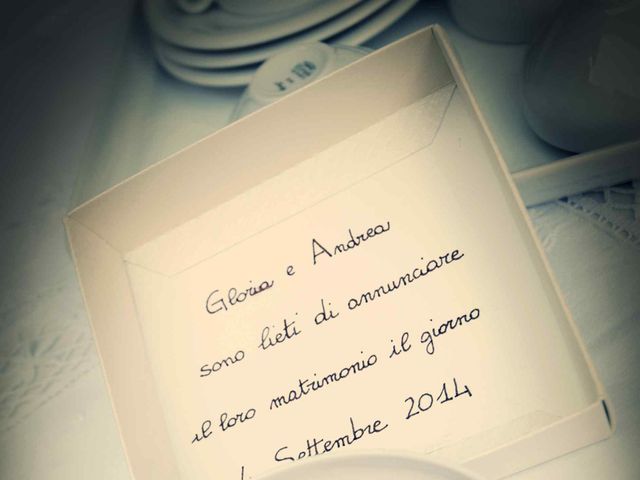 Gloria e Andrea
sono lieti di annunciare
il loro matrimonio il giorno
Settembre 2014